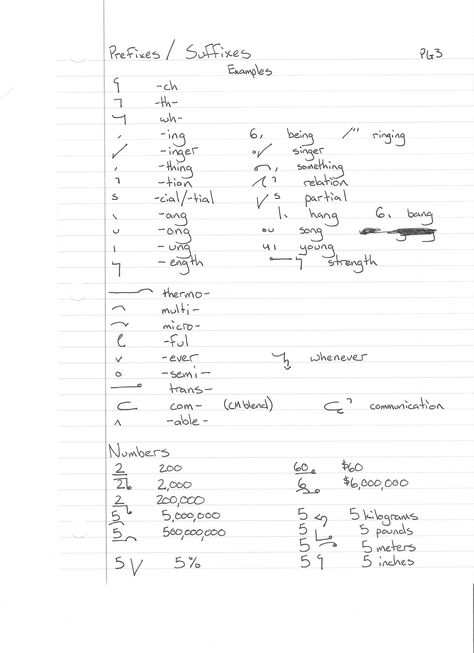 Prefixes / Suffixes PG3
Examples
-ch
-th-
wh-
-ing 6, being ringing
-inger singer
-thing something
-tion relation
-cial/-tial s partial
-ang hang 6. bang
-ong song
-ung young
-ength strength
thermo-
multi-
micro-
-ful
-ever whenever
-semi-
trans-
com- (CM blend) communication
-able-
Numbers
2 200 60. $60
2 2,000 6 $6,000,000
2 200,000
5 5,000,000 5 5 kilograms
5 500,000,000 5 5 pounds
5 5 meters
5 5% 5 5 inches